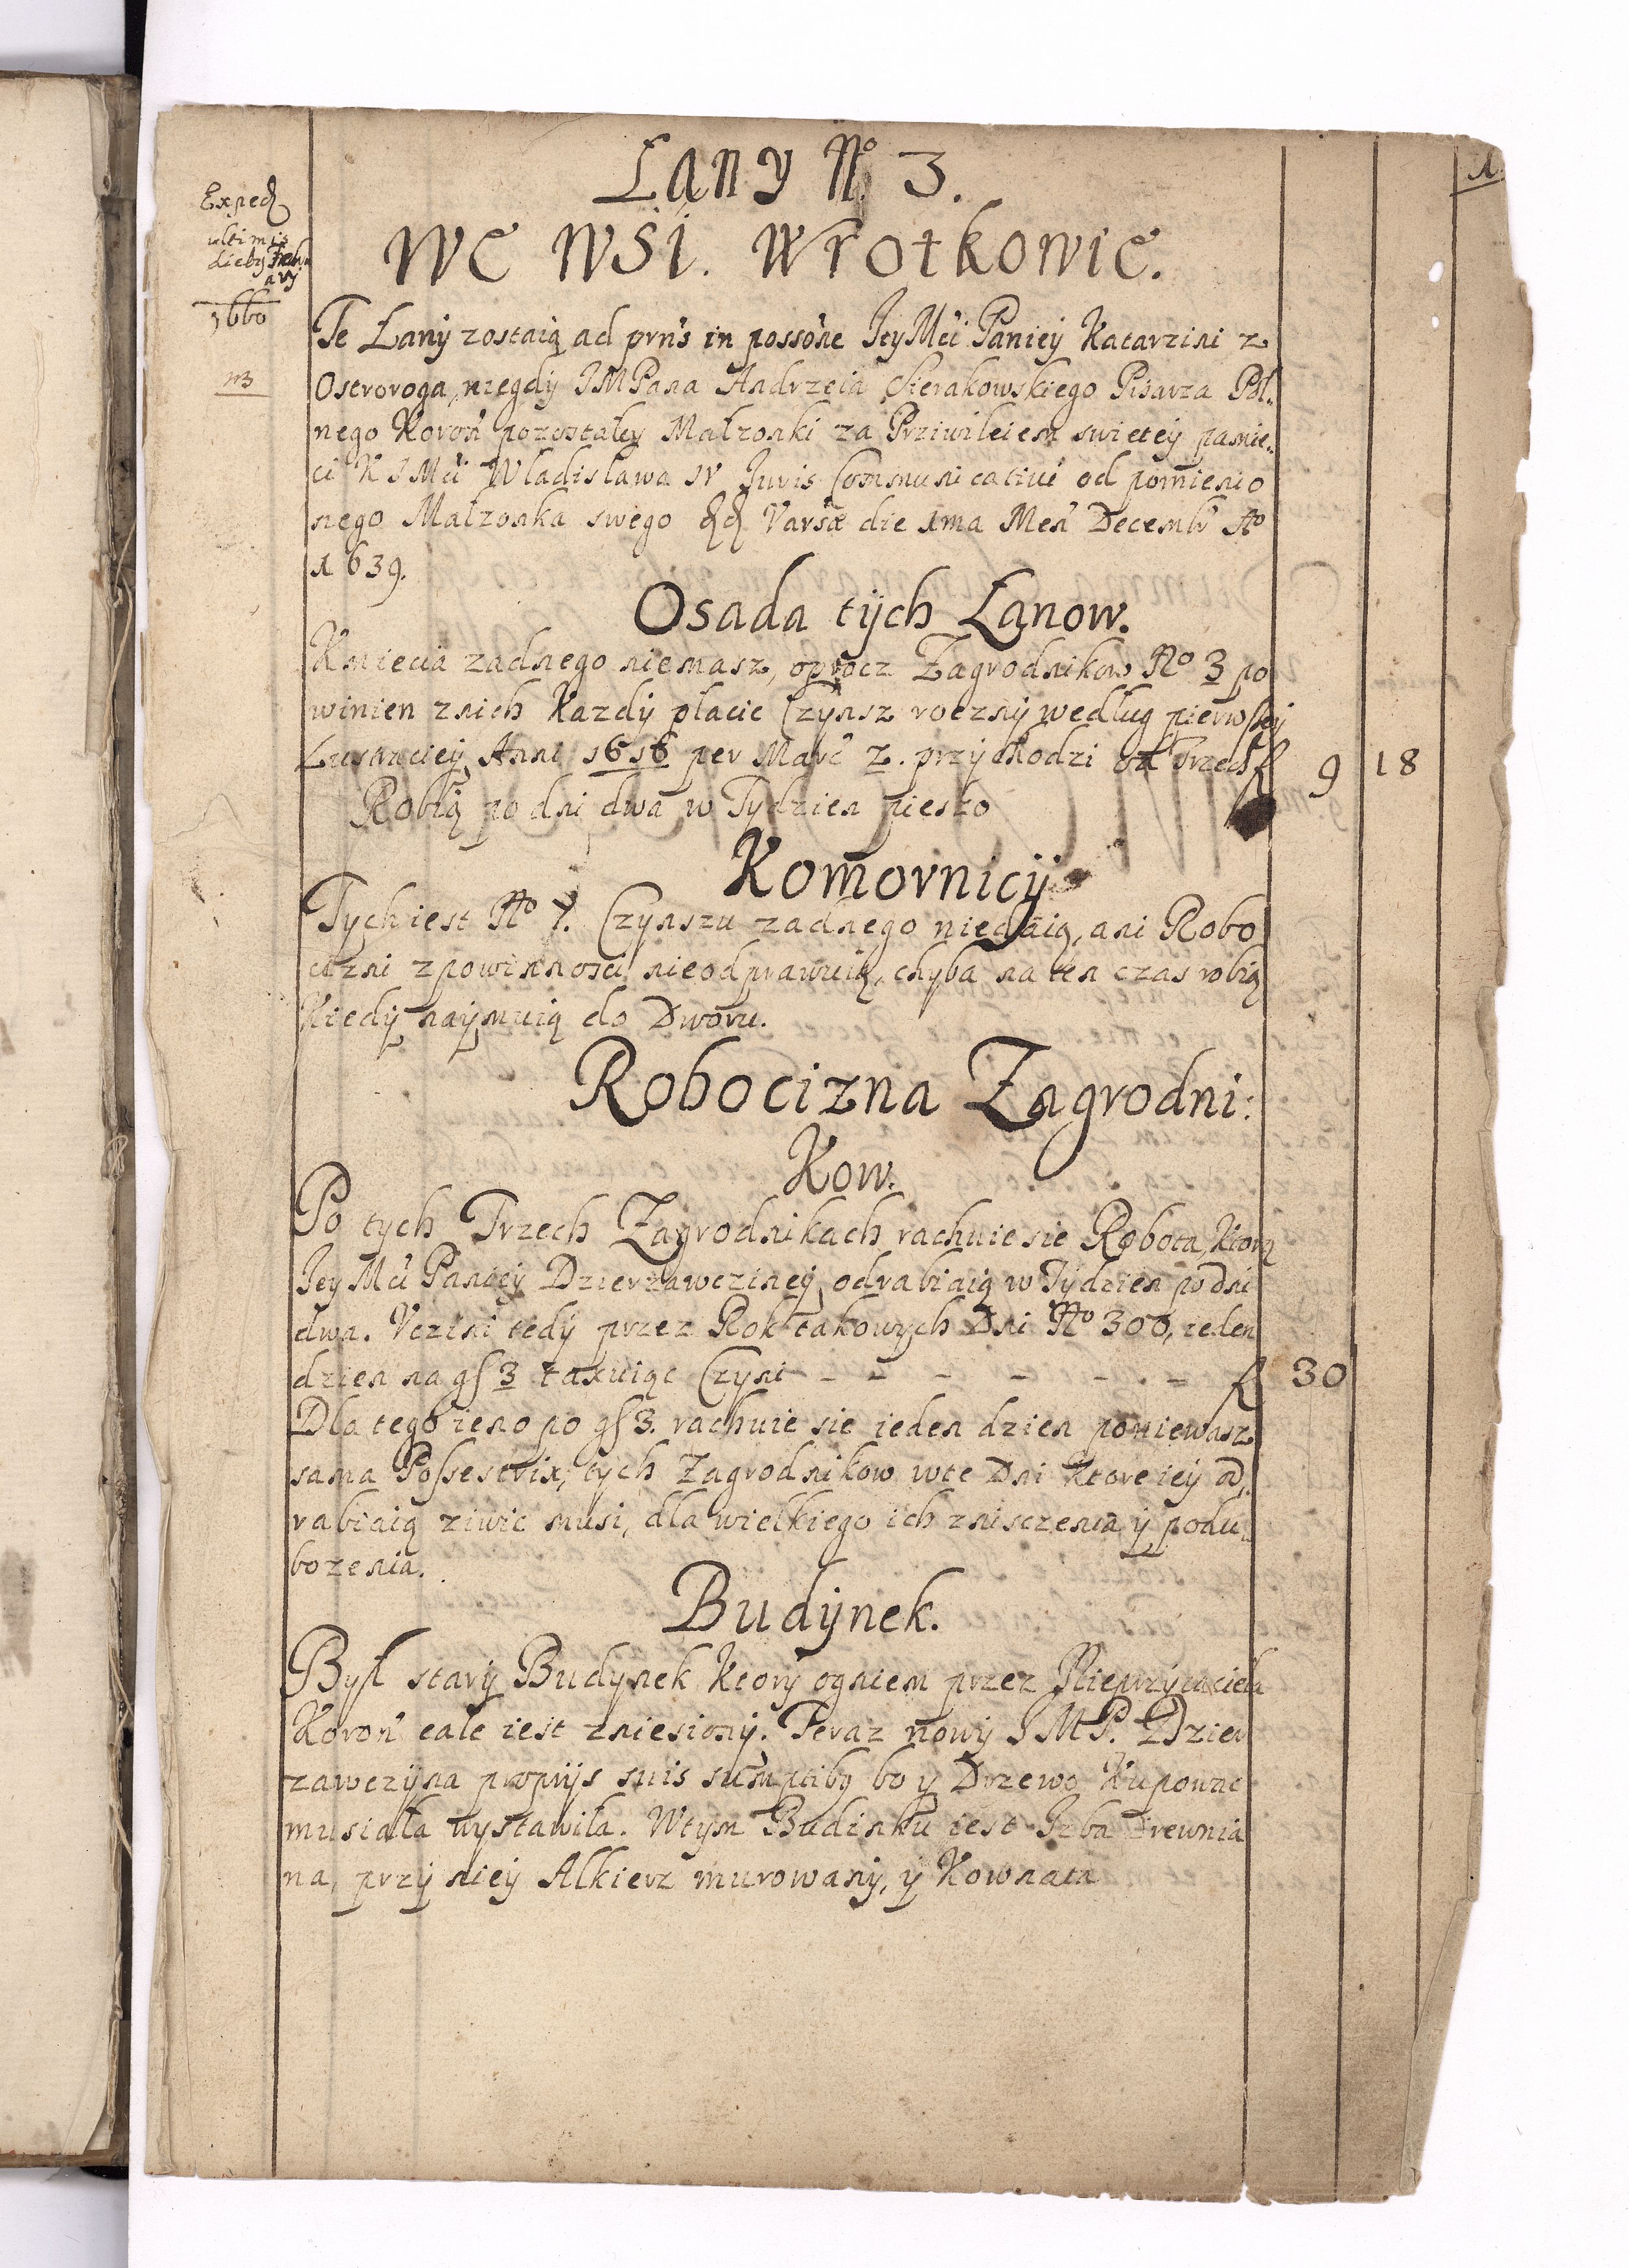 1.
Łany No 3.
we wsi. Wrotkowie.
Exped
ultimis
dieb9 Febru
ary
1660
Te Łany zostaią ad prns in possone Jey Mci Paniey Katarzini z
Ostroroga, niegdy JMPana Andrzeia Sierakowskiego Pisarza Pol„
nego Koron pozostałey Małzonki za Prziwileiem swietey pamie„
ci K J Mci Wladisława IV Juris Communicatiui od pomienio
nego Małzonka swego Varsæ die 1ma Men Decemb Ao
1639.
Osada tych Łanow.
Kmiecia zadnego niemasz, oprocz Zagrodnikow No 3 po
winien znich Kazdy płacic Czynsz roczny według pierwszey
Lustraciey Anni 1616 per Marc 2. przychodzi od Trzech fl 9 18
Robią po dni dwa w Tydzien pieszo
Komornicy
Tych iest No 7. Czynszu zadnego niedaią, ani Robo
cizni zpowinnosci nieodprawuią, chyba na ten czas robią
Kiedy naymuią do Dworu.
Robocizna Zagrodni:
Kow.
Po tych Trzech Zagrodnikach rachuie sie Robota, Ktorą
Jey Mci Paniey Dzierzawcziney odrabiaią w Tydzien po dni
dwa. Vczini tedy przez Rok takowych Dni No 300, ieden
dzien na gf 3 taxuiąc Czyni - - - - - - fl 30
Dla tego ieno po gf 3. rachuie sie ieden dzien poniewasz
sama Possestrix, tych Zagrodnikow wte Dni Ktore iey od„
rabiaią ziwic musi, dla wielkiego ich znisczenia y podu„
bozenia.
Budynek.
Był stary Budynek Ktory ogniem przez Nieprzyiaciela
Koron cale iest zniesiony. Teraz nowy J M P. Dzier
zawczyna proprijs suis sumptib9 bo y Drzewo Kupowac
musiała wystawiła. Wtym Budinku iest Izba Drewnia
na, przy niey Alkierz murowany, y Kownata